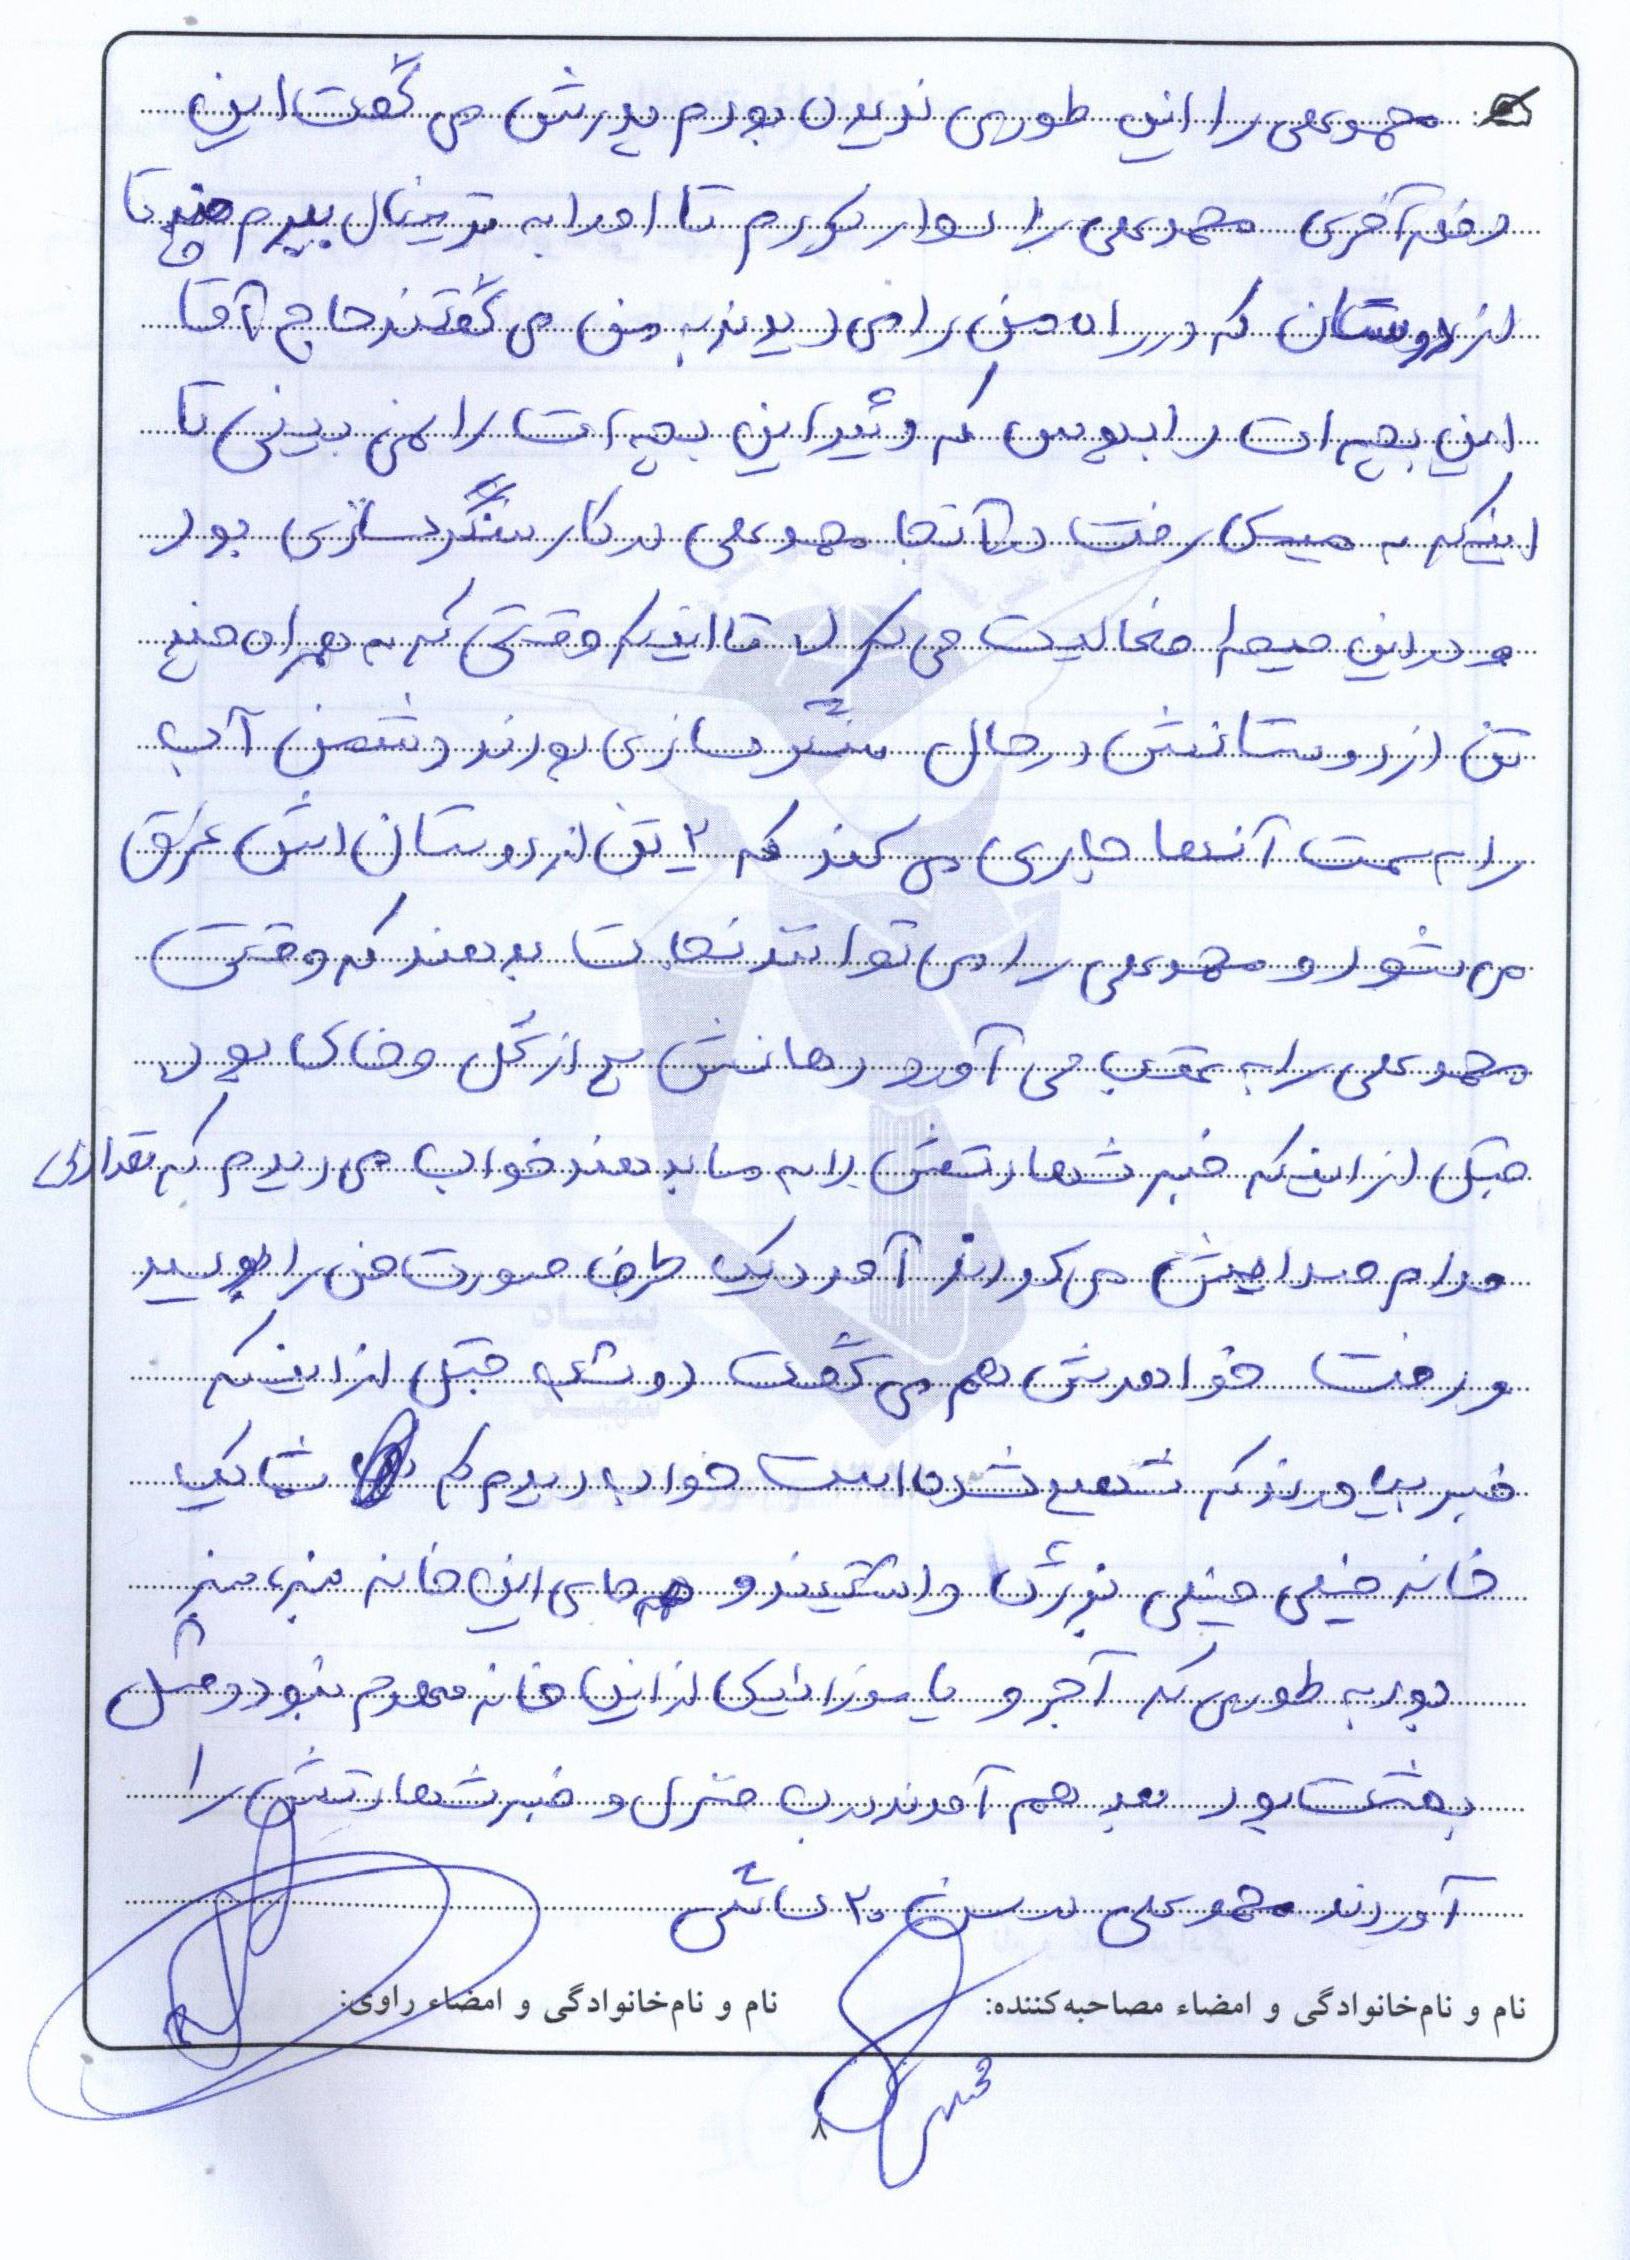 محمدعلی را این طوری ندیده بودم پدرش می گفت این
دفعه آخری محمدعلی را سوار کردم تا او را به ترمینال ببرم چند تا
از دوستان که در راه من را می دیدند به من می گفتند حاج آقا
این بچه ات را ببوس که دیگر این بچه ات را نمی بینی تا
اینکه به میمک رفت در آنجا محمدعلی در کار سنگرسازی بود
و در این جبهه فعالیت می کرد تا اینکه وقتی که به همراه چند
تن از دوستانش در حال سنگرسازی بودند دشمن آب
را به سمت آنها جاری می کند که ۲ تن از دوستان اش غرق
می شود و محمدعلی را می توانند نجات بدهند که وقتی
محمدعلی را به عقب می آورد دهانش پر از گل و خاک بود
قبل از اینکه خبر شهادتش را به ما بدهند خواب می دیدم که تعدادی
مدام صدایش می کردند آمد و یک طرف صورت من را بوسید
و رفت خواهرش هم می گفت دو شب قبل از اینکه
خبر بیاورند که شهید شده است خواب دیدم که شما یک
خانه خیلی خیلی بزرگ داشتید و همه جای این خانه سبز، سبز
بود به طوری که آجر و یا موزائیک از این خانه معلوم نبود و مثل
بهشت بود بعد هم آمدند درب منزل و خبر شهادتش را
آوردند محمدعلی در سن ۲۰ سالگی
نام و نام‌خانوادگی و امضاء مصاحبه‌کننده:
نام و نام‌خانوادگی و امضاء راوی:
۸